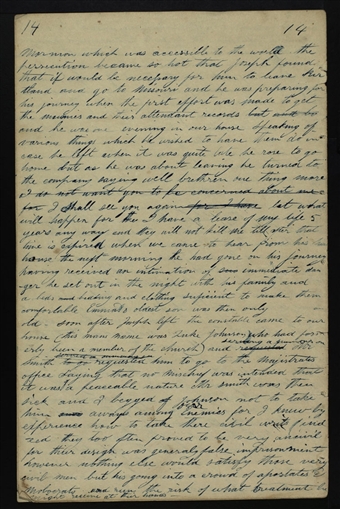 14 14
Mormon which was accessible to the world the
persecution became so hot that Joseph found
that it would be necessary for him to leave Kir
tland and go to Missouri and he was preparing for
his journey when the first effort was made to get
the mummies and their attendant records
and he was one evening in our house speaking of
various things which he wished to have done in
case he left when it was quite late he rose to go
home but as he was about leaving he turned to
the company saying well brethren one thing more
I do not want you to be concerned about me
for I shall see you again for I have let what
will happen for I have a lease of my life 5
years any way and they will not kill me till after that
time is expired when we came to hear from his
house the next morning he had gone on his journey
having received an intimation of immediate dan
ger he set out in the night with his family and
a bed and bedding and clothing sufficient to make them
comfortable Emma's oldest son was then only
old soon after Joseph left the constable came to our
house (this man name was Luke Johnson who had for
erly been a member of the church) and
serving a summon on
Smith requested him to go to the Magistrates
office saying that no mischief was intended that
it was a peaceable nature Mr Smith was then
sick and I begged of Johnson not to take
him away among his enemies for I knew by
experience how to take these civil writs find
ing they too often proved to be very uncivil
for their design was general false imprisonment
however nothing else would satisfy those very
civil men but his going into a crowd of apostates &
Mobocrats and run the risk of what treatment he
might receive at their hands